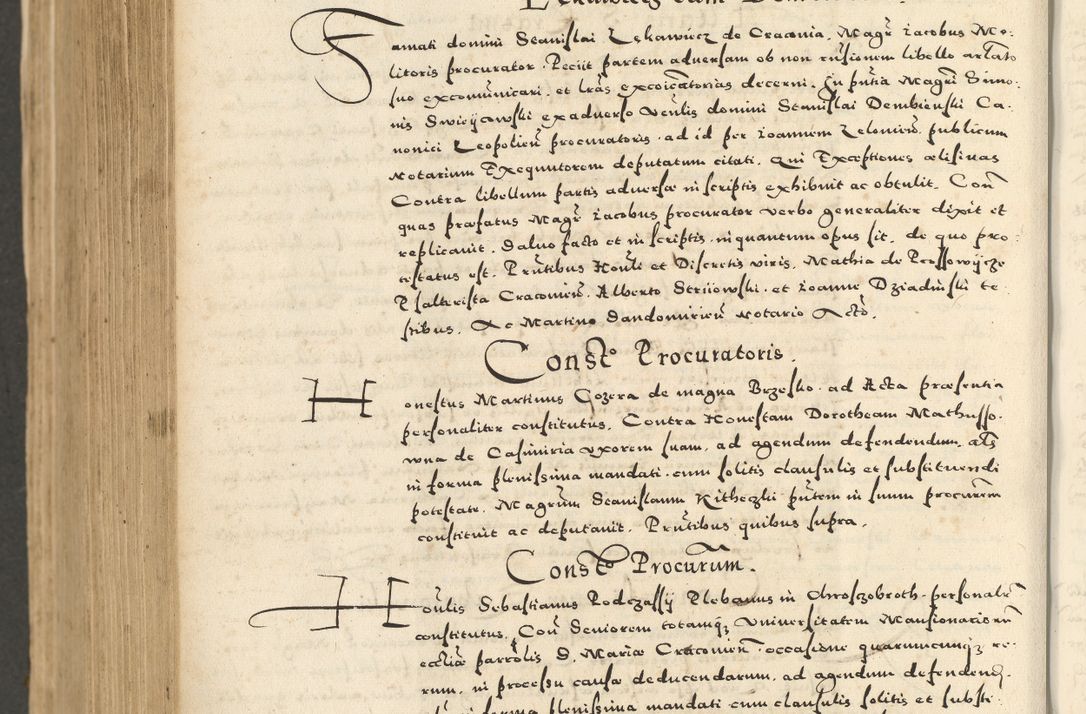 Famati domini Stanislai Lykawiecz de Cracovia, Magr̃ Jacobus Mo-
litoris procurator. Peciit partem adversam ob non cusionem libello artato
suo excomunicari. et lr̃as excoic̃atorias decerni. In pñtia Magri Simo-
nis Swieijcowski ex adverso Veñlis domini Stanislai Dembienski Ca-
nonici Leopolieñ procuratoris. ad id per Joannem Zelonieñ, publicum
Notarium Exequutorem deputatum citati. Qui Exceptiones elisivas
Contra libellum partis adversæ in scriptis exhibuit ac obtulit. Con̄
quas præfatus Magr̃ Jacobus procurator verbo generaliter dixit et
replicavit. Salvo facto et in scriptis in quantum opus sit, de quo pro-
testatus est. Prñtibus Honli et Discretis viris, Mathia de
Psalterista Cracovieñ. Alberto Striiowski. et Joanne Dziadulski te-
stibus. Ac Martino Sandomirieñ Notario Actõ.
Const̃o Procuratoris.
Honestus Martinus Gozera de magna Brzesko. ad Acta præsentia
personaliter constitutus. Contra Honestam Dorotheam Mathusso-
wna de Casimiria uxorem suam, ad agendum defendendum, als̃
in forma plenissima mandati cum solitis clausulis et substituendi
potestate. Magrum Stanislaum Kitheczlii pñtem in suum procurem
constituit ac deputavit. Prñtibus quibus supra.
Const̃o Procurũm.
Hoñlis Sebastianus Podczassij Plebanus in Chroszobroth. personalr̃
constitutus, Coñ Seniorem totamq; Universitatem Mansionariorũ
ecc̃liæ parrõlis S. Mariæ Cracovieñ. occasione quarumcumq; re-
rum, in processu causæ deducendarum, ad agendum defendend̃.
forma plenissima mandati cum clausulis solitis et substi-